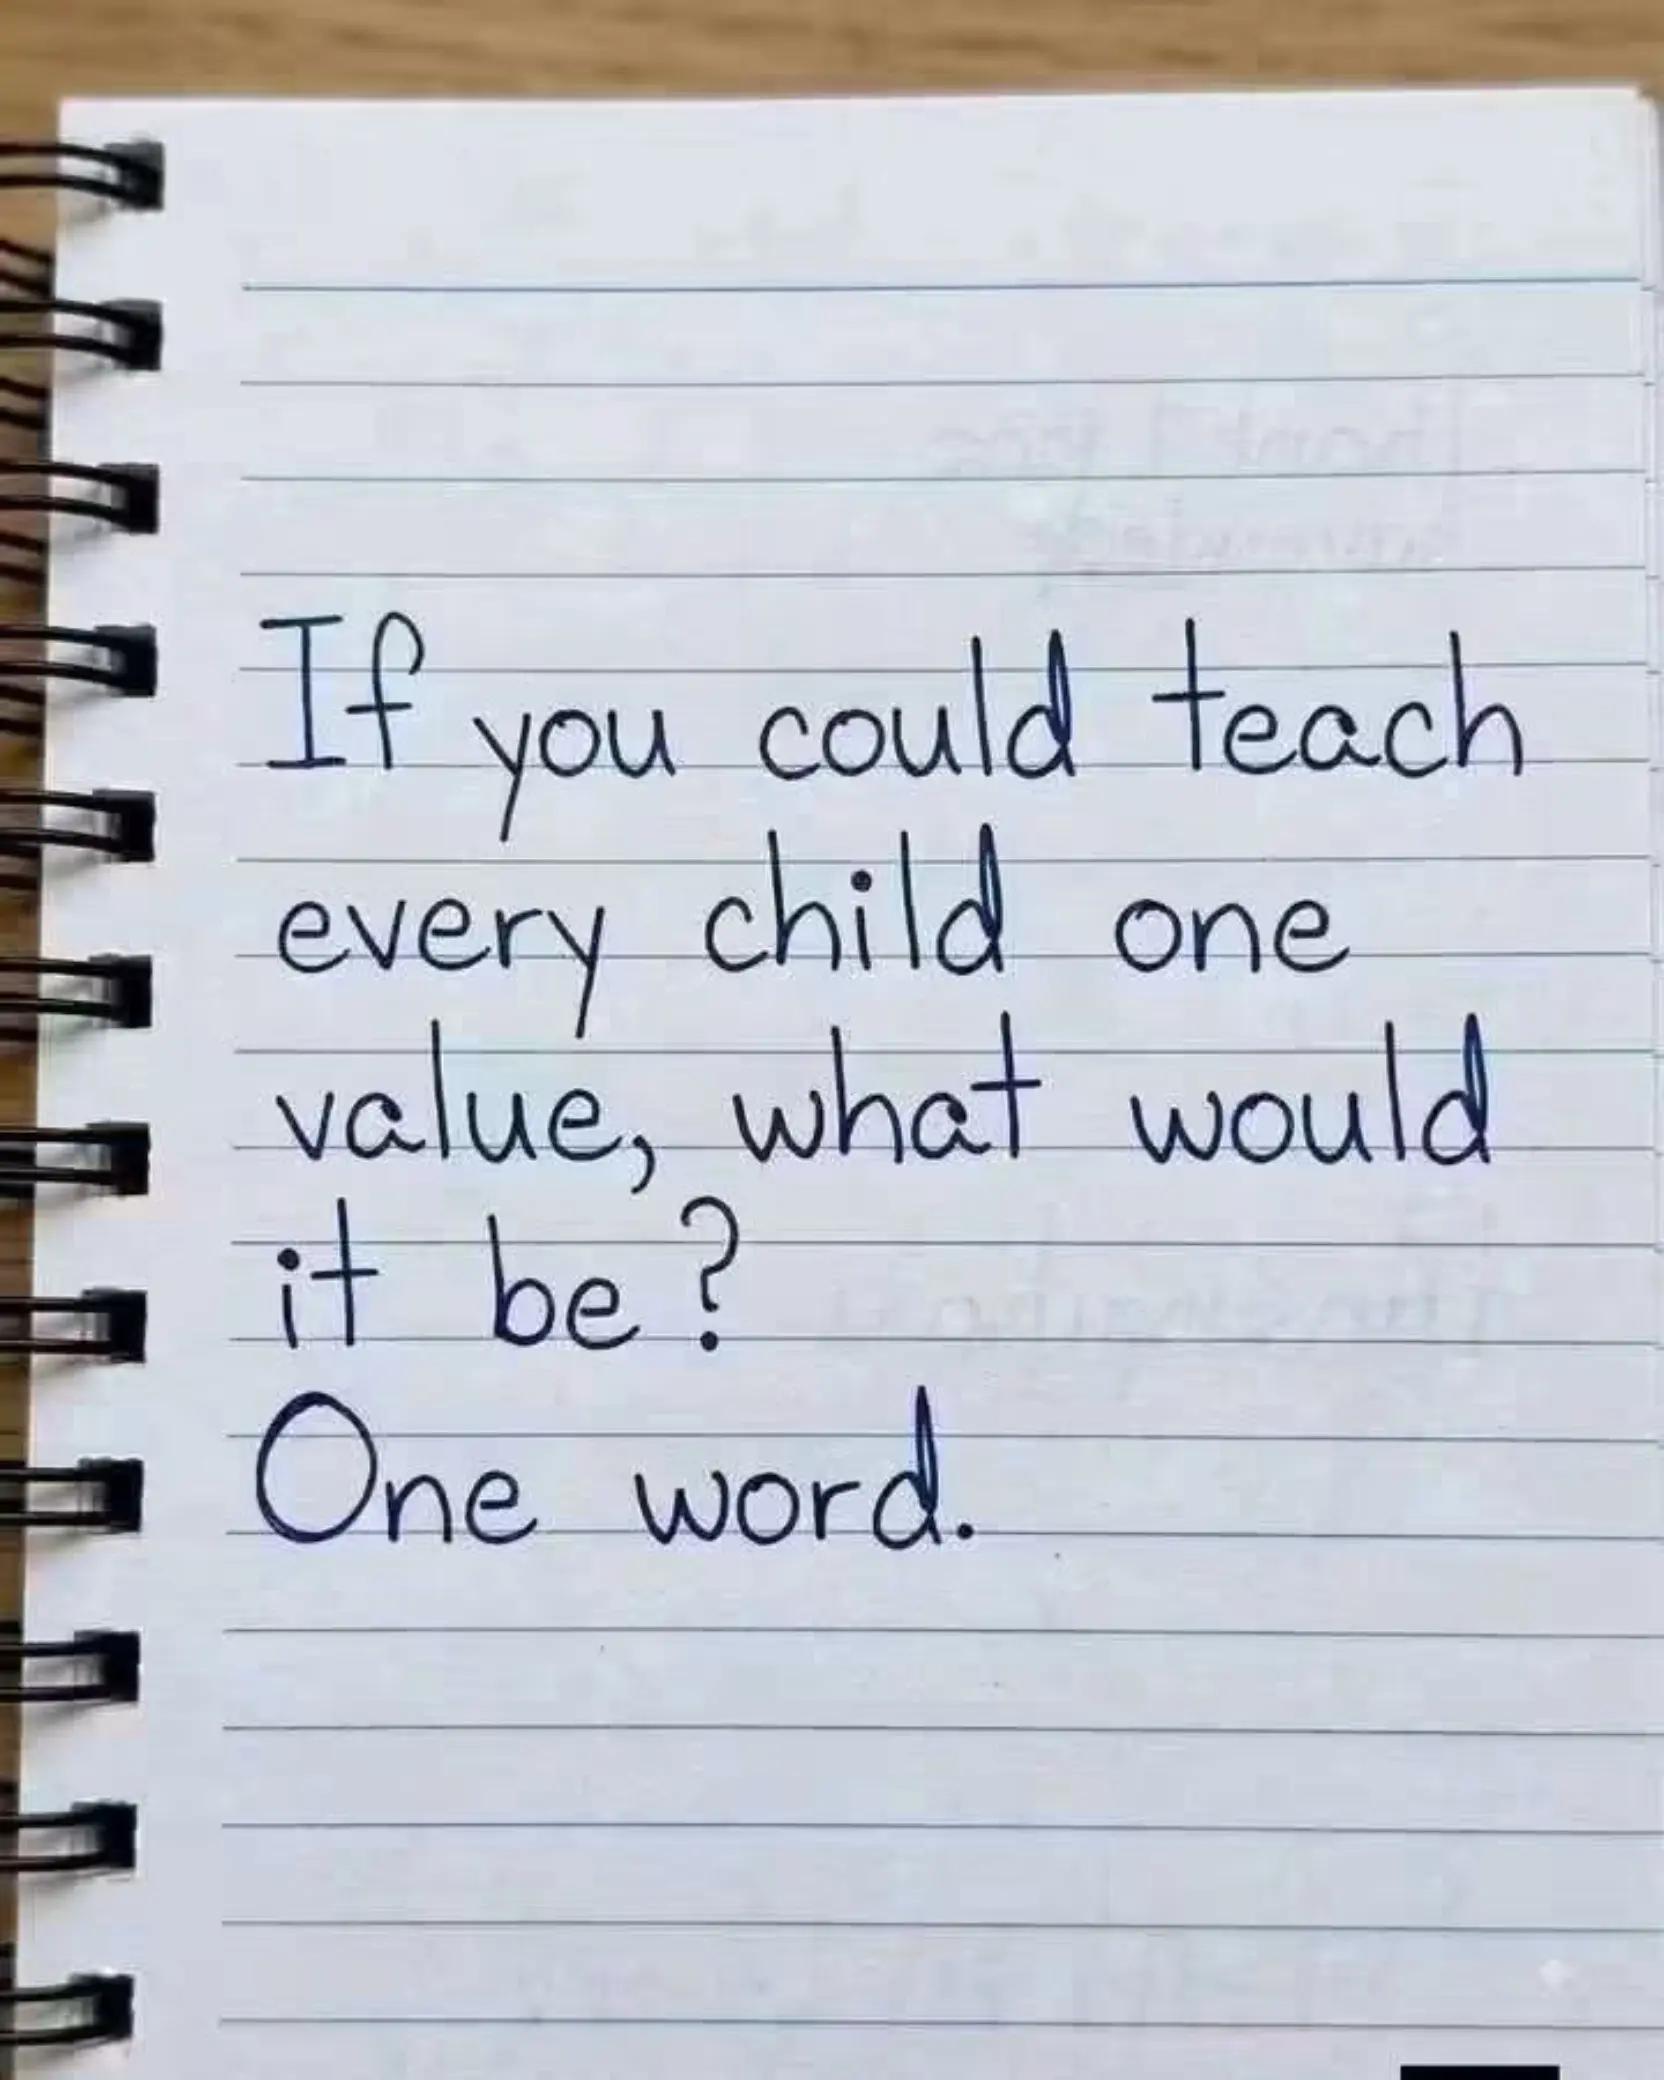 If you could teach
every child one
value, what would
it be?
One word.